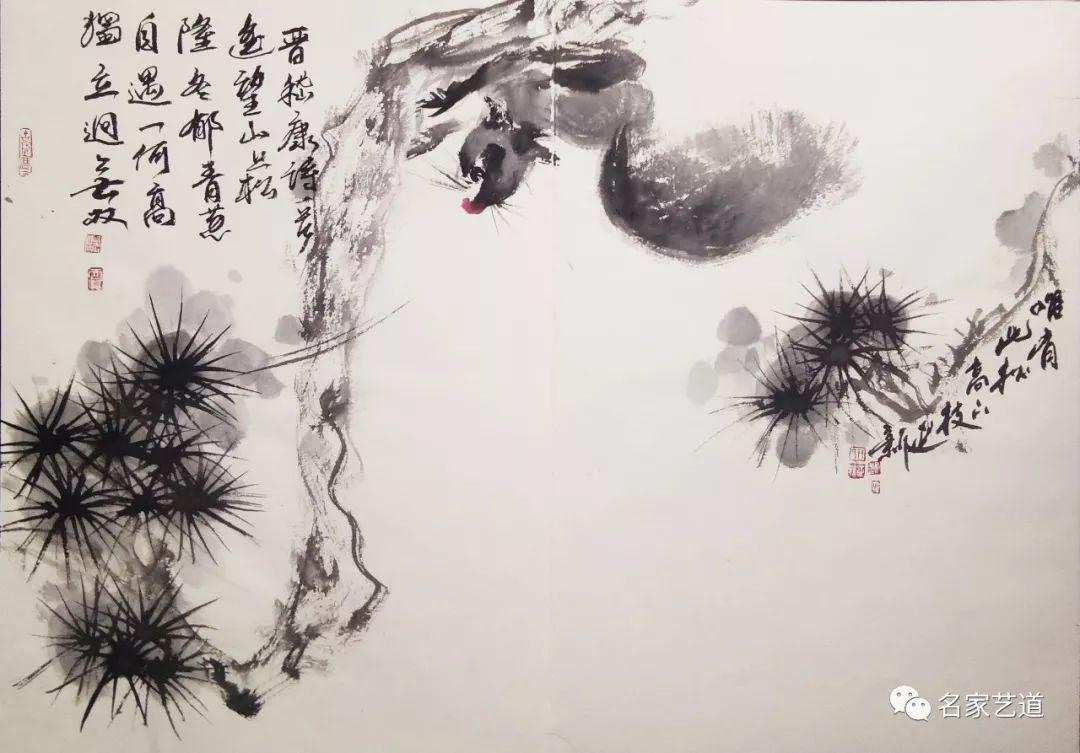 晋嵇康诗
遥望山上松
隆冬郁青葱
自遇一何高
獨立迥無双
唯有
此松
高下
枝
名家艺道